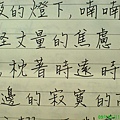 的燈下，喃喃
怪丈量的焦慮
，枕著時遠時
邊的寂寞的